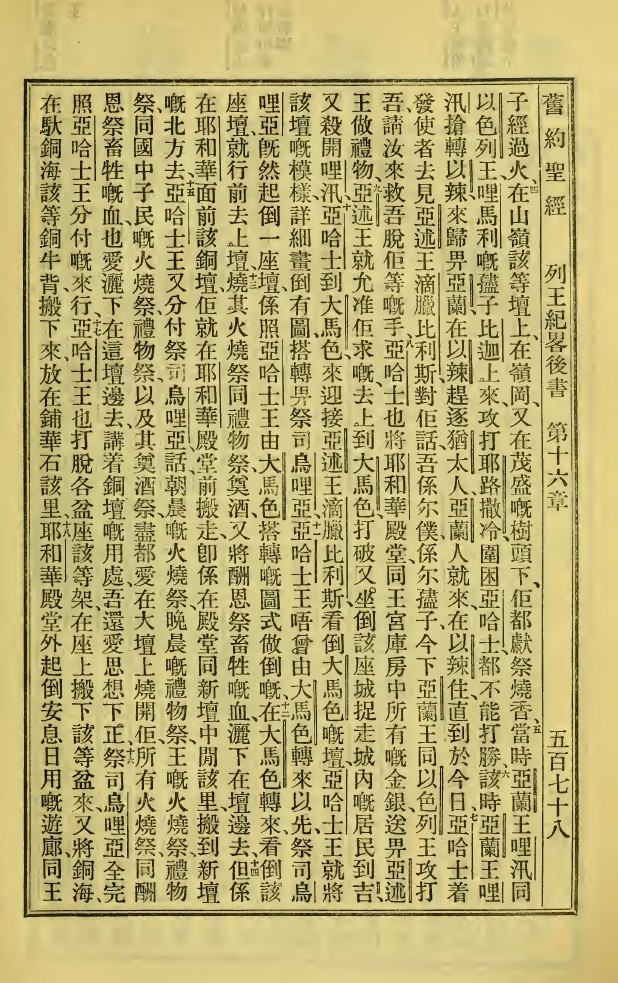 舊約聖經 列王紀畧後書 第十六章 五百七十八
子經過火、四在山嶺該等壇上、在嶺岡、又在茂盛嘅樹頭下、佢都獻祭燒香、五當時亞蘭王哩汛同
以色列王哩馬利嘅儘子比迦上來攻打耶路撒冷圍困亞哈士、都不能打勝、六該時亞蘭王哩
汛搶轉以辣來歸畀亞蘭、在以辣趕逐猶太人、亞蘭人就來在以辣住、直到於今日、七亞哈士着
發使者去見亞述王滴臘比利斯對佢話、吾係尔僕係尔孻子、今下亞蘭王同以色列王攻打
吾、請汝來救吾脫佢等嘅手、八亞哈士也將耶和華殿堂同王宮庫房中所有嘅金銀送畀亞述
王做禮物、九亞述王就允准佢求嘅、去上到大馬色、打破又坐倒該座城、捉走城內嘅居民到吉、
又殺開哩汛、十亞哈士到大馬色來迎接亞述王滴臘比利斯、看倒大馬色嘅壇、亞哈士王就將
該壇嘅模樣、詳細畫倒有圖、搭轉畀祭司烏哩亞、十一亞哈士王唔曾由大馬色轉來以先、祭司烏
哩亞旣然起倒一座壇、係照亞哈士王由大馬色搭轉嘅圖式做倒嘅、十二在大馬色轉來、看倒該
座壇、就行前去上壇、十三燒其火燒祭同禮物祭、奠酒、又將酬恩祭畜牲嘅血、灑下在壇邊去、十四但係
在耶和華面前該銅壇、佢就在耶和華殿堂前搬走、卽係在殿堂同新壇中間該里搬到新壇
嘅北方去、十五亞哈士王又分付祭司烏哩亞話、朝晨嘅火燒祭、晚晨嘅禮物祭、王嘅火燒祭禮物
祭、同國中子民嘅火燒祭禮物祭、以及其奠酒祭、盡都愛在大壇上燒開、佢所有火燒祭、同酬
恩祭畜牲嘅血、也愛灑下在這壇邊去、講着銅壇嘅用處、吾還愛思想下正、十六祭司烏哩亞全完
照亞哈士王分付嘅來行、十七亞哈士王也打脫各盆座該等架、在座上搬下該等盆來、又將銅海、
在馱銅海該等銅牛背搬下來、放在鋪華石該里、十八耶和華殿堂外起倒安息日用嘅遊廊、同王